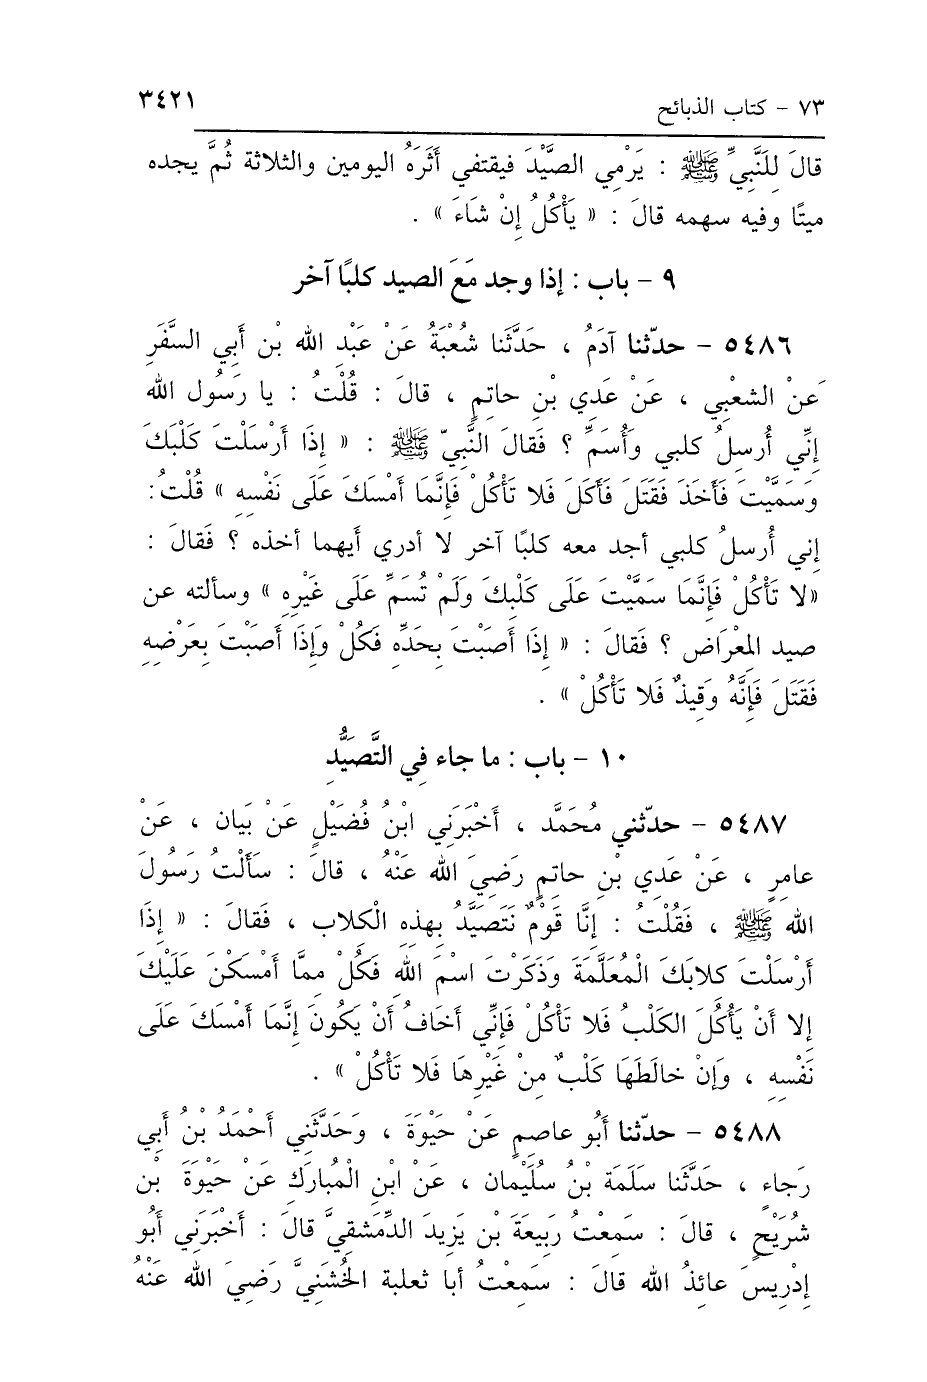 ٧٣ - كتاب الذبائح ٣٤٢١
قالَ لِلنَّبيِّ ﷺ : يَرْمِي الصَّيْدَ فيقتفي أَثَرَهُ اليومين والثلاثة ثُمَّ يجده
ميتًا وفيه سهمه قالَ : « يَأْكُلُ إِنْ شَاءَ » .
٩ - باب : إذا وجد مَعَ الصيد كلبًا آخر
٥٤٨٦ - حدّثنا آدَمُ ، حَدَّثَنا شُعْبَةُ عَنْ عَبْدِ الله بْن أَبي السَّفَرِ
عَنْ الشعْبِي ، عَنْ عَدِي بْنِ حاتِمٍ ، قالَ : قُلْتُ : يا رَسُول الله
إِنِّي أُرسِلُ كلبي وَأُسَمِّ ؟ فَقالَ النَّبيّ ﷺ : « إِذَا أَرْسَلْتَ كَلْبَكَ
وَسَمَّيْتَ فَأَخَذَ فَقَتَلَ فَأَكَلَ فَلا تَأْكُلْ فَإِنَّمَا أَمْسَكَ عَلَى نَفْسِهِ » قُلْتُ :
إني أُرسلُ كلبي أجد معه كلبًا آخر لا أدري أَيهما أخذه ؟ فَقالَ :
«لا تَأْكُلْ فَإِنَّمَا سَمَّيْتَ عَلَى كَلْبِكَ وَلَمْ تُسَمِّ عَلَى غَيْرِهِ » وسألته عن
صيد المِعْرَاض ؟ فَقالَ : « إِذَا أَصَبْتَ بِحَدِّهِ فَكُلْ وَإِذَا أَصَبْتَ بِعَرْضِهِ
فَقَتَلَ فَإِنَّهُ وَقِيذٌ فَلا تَأْكُلْ » .
١٠ - باب : ما جاء فِي التَّصَيُّدِ
٥٤٨٧ - حدّثني مُحَمَّد ، أَخْبَرَني ابْنُ فُضَيْلٍ عَنْ بَيان ، عَنْ
عامرٍ ، عَنْ عَدِي بْنِ حاتمٍ رَضِيَ الله عَنْهُ ، قالَ : سَأَلْتُ رَسُولَ
الله ﷺ ، فَقُلْتُ : إنَّا قَوْمٌ نَتَصَيَّدُ بِهذِهِ الْكلاب ، فَقالَ : « إِذَا
أَرْسَلْتَ كلابَكَ الْمُعَلَّمَةَ وَذَكَرْتَ اسْمَ اللهِ فَكُلْ ممَّا أَمْسَكْنَ عَلَيْكَ
إلا أَنْ يَأْكُلَ الكَلْبُ فَلا تَأْكُلْ فَإِنِّي أَخَافُ أَنْ يَكُونَ إِنَّمَا أَمْسَكَ عَلَى
نَفْسِهِ ، وَإِنْ خالَطَهَا كَلْبٌ مِنْ غَيْرِهَا فَلا تَأْكُلْ » .
٥٤٨٨ - حدّثنا أَبُو عاصِمٍ عَنْ حَيْوَةَ ، وَحَدَّثَنِي أَحْمَدُ بْنُ أَبِي
رَجاءٍ ، حَدَّثَنا سَلَمَة بْنُ سُلَيْمان ، عَنْ ابْنِ الْمُبارَكِ عَنْ حَيْوَةَ بْن
شُرَيْحٍ ، قالَ : سَمِعْتُ رَبِيعَةَ بْن يَزِيدَ الدِّمَشْقِيَّ قالَ : أَخْبَرَني أَبُو
إدْرِيسَ عائذُ الله قالَ : سَمِعْتُ أبا ثعلبة الخُشَنِيَّ رَضِيَ الله عَنْهُ